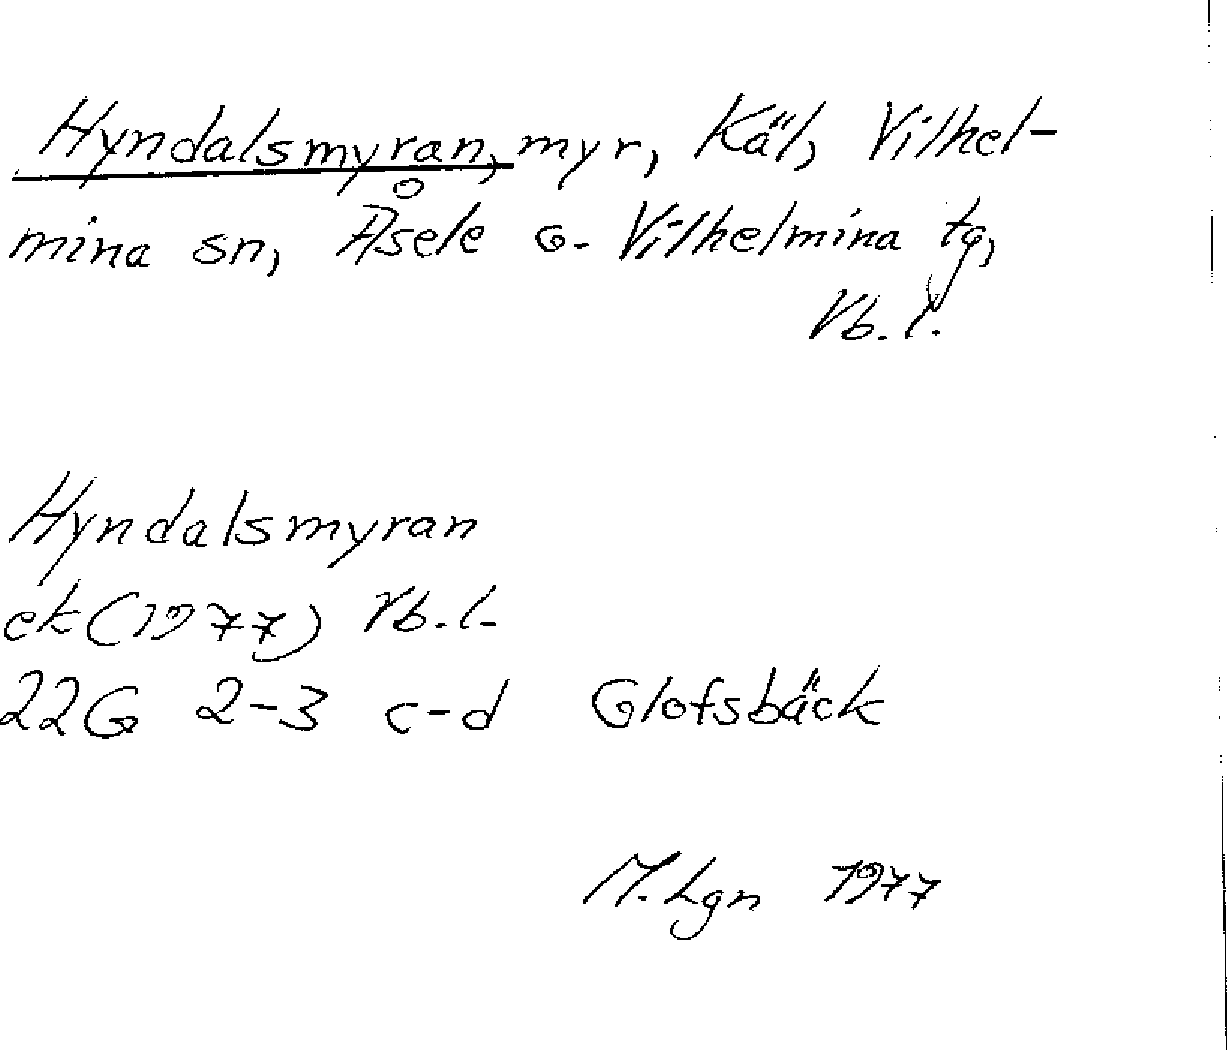 Hyndalsmyran, myr, Käl, Vilhel-
mina sn, Åsele o. Vilhelmina tg,
Vb. l.
Hyndalsmyran
ek (1977) Vb. l.
22G 2-3 c-d Glofsbäck
M. Lgn 1977